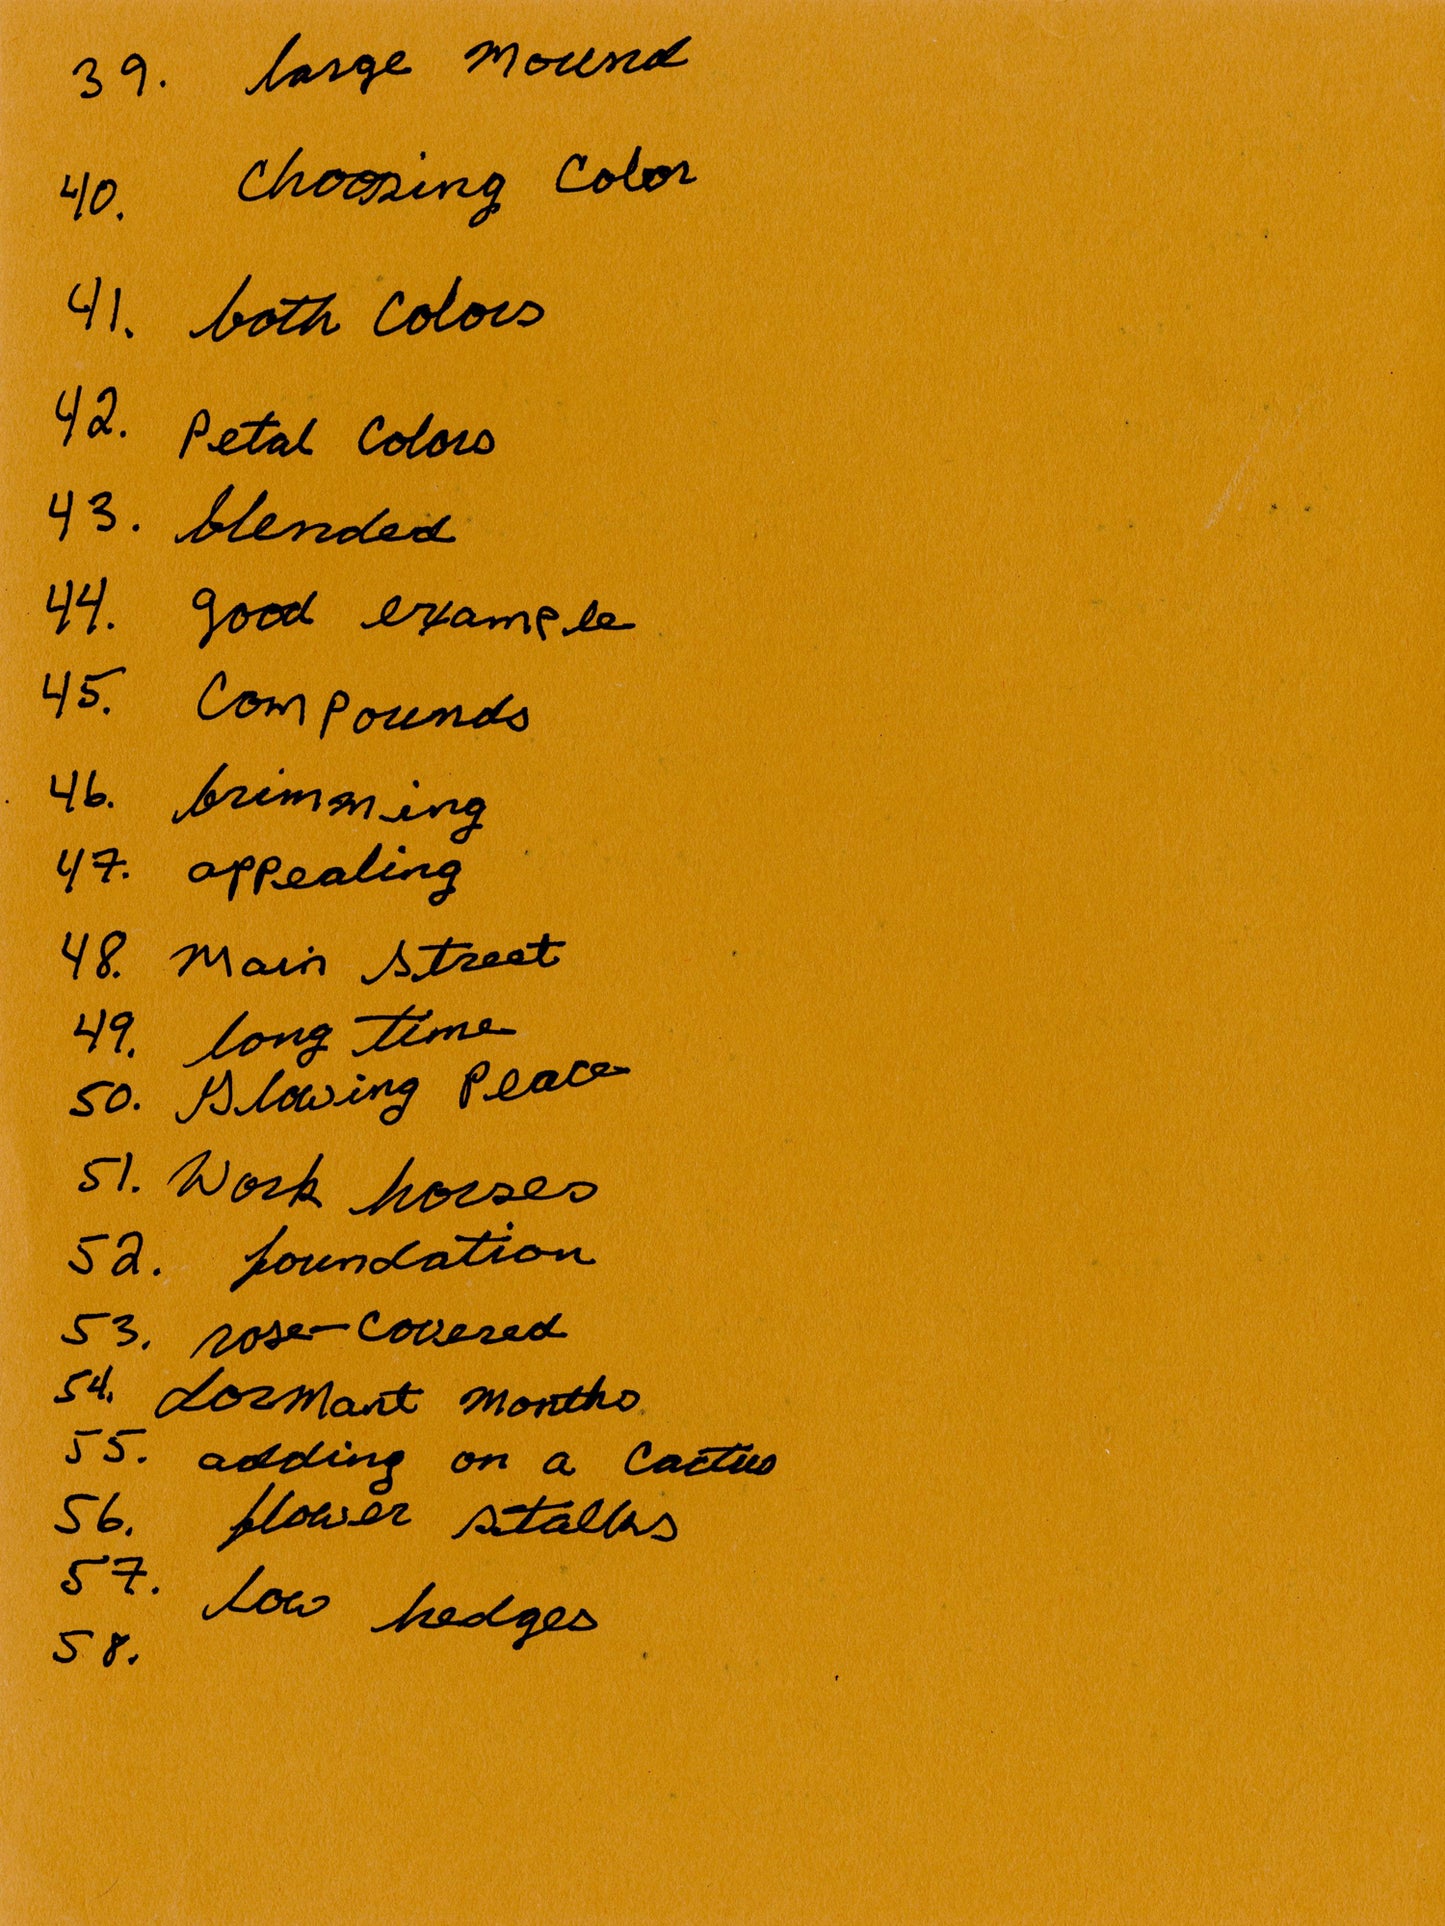 39. large Mound
40. Choosing Color
41. both Colors
42. Petal Colors
43. blended
44. good example
45. Compounds
46. brimming
47. appealing
48. Main Street
49. long time
50. Glowing Peace
51. Work horses
52. foundation
53. rose-Covered
54. dorMant Months
55. adding on a Cactus
56. flower stalks
57. low hedges
58.